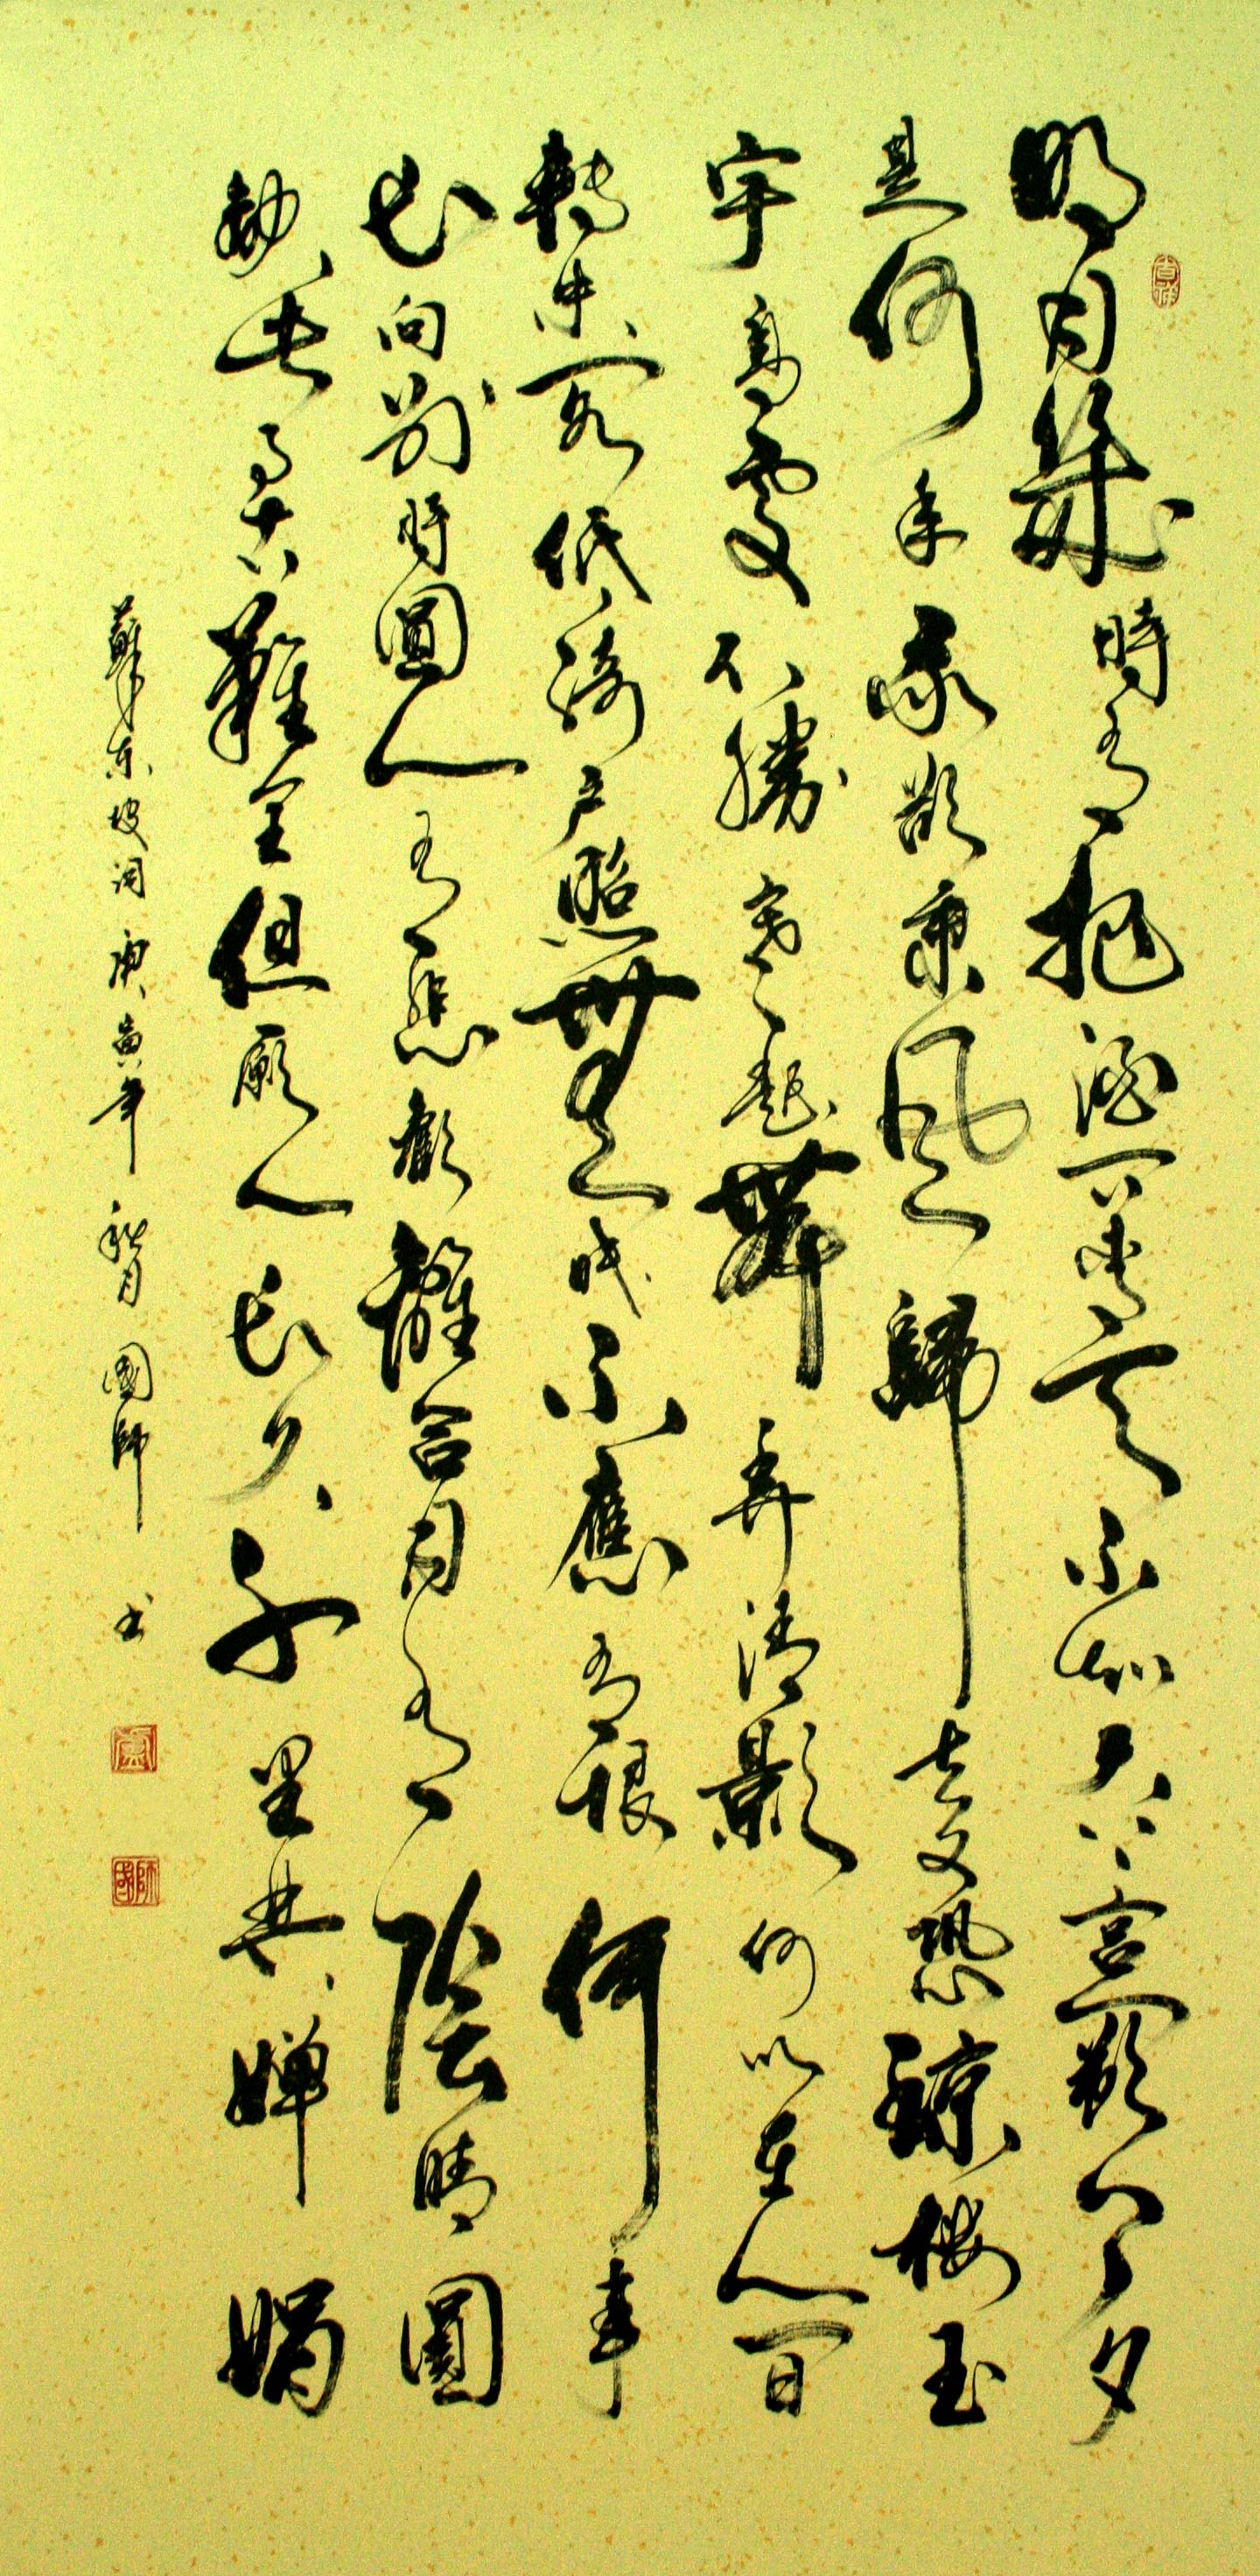 明月幾時有把酒問青天不知天上宮闕今夕
是何年我欲乘風歸去又恐瓊樓玉
宇高處不勝寒起舞弄清影何似在人間
轉朱閣低綺戶照無眠不應有恨何事
長向別時圓人有悲歡離合月有陰晴圓
缺此事古難全但願人長久千里共嬋娟
蘇東坡詞 庚寅年 秋月 國師 书
吉祥
國師